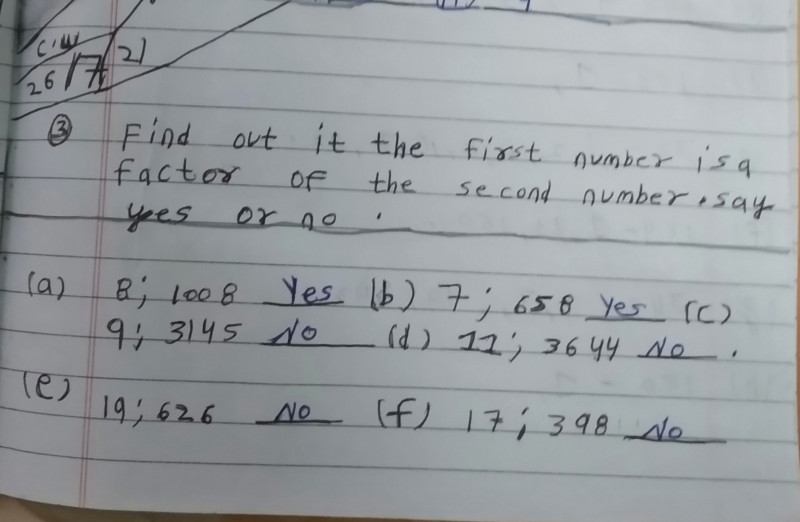 C.W
26/7/21
③ Find out it the first number is a
factor of the second number. say
yes or no.
(a) 8; 1008 Yes (b) 7; 658 Yes (c)
9; 3145 No (d) 11; 3644 No.
(e)
19; 626 No (f) 17; 398 No